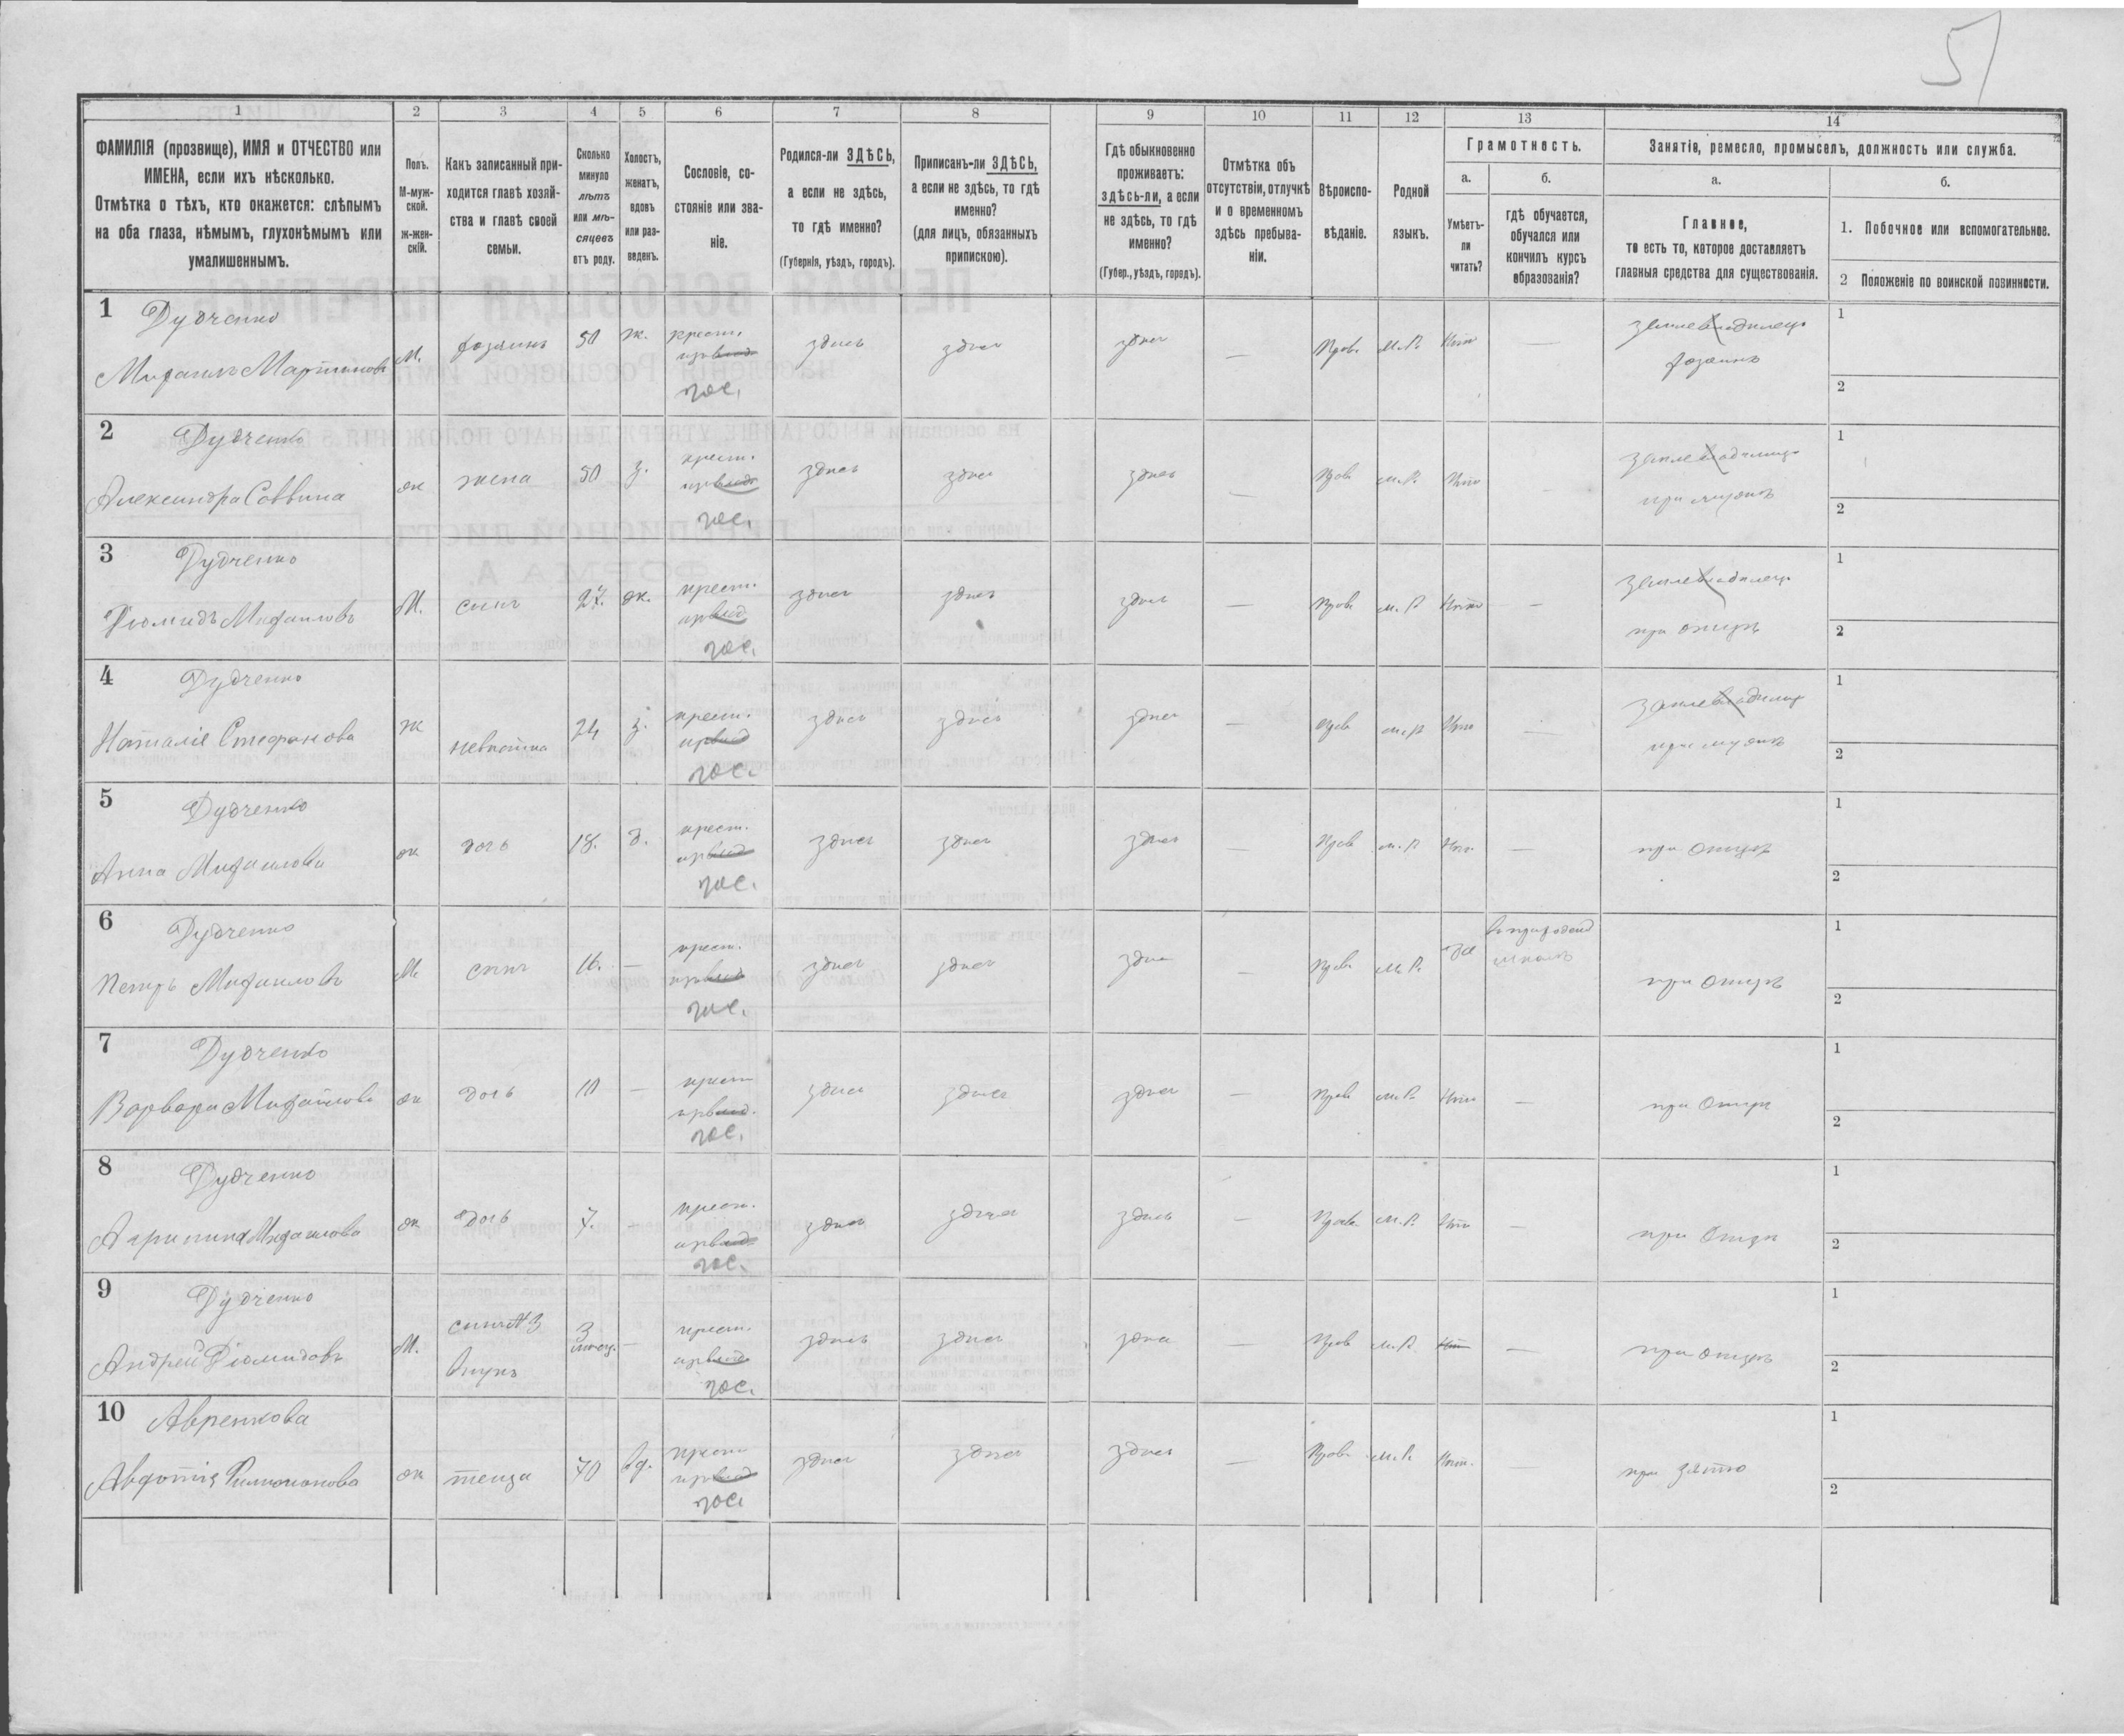 51
1
2
3
4
5
6
7
8
9
10
11
12
13
14
ФАМИЛІЯ (прозвище), ИМЯ и ОТЧЕСТВО или
ИМЕНА, если ихъ нѣсколько.
Отмѣтка о тѣхъ, кто окажется: слѣпымъ
на оба глаза, нѣмымъ, глухонѣмымъ или
умалишеннымъ.
Полъ.
М-муж-
ской.
Ж-жен-
скій.
Какъ записанный при-
ходится главѣ хозяй-
ства и главѣ своей
семьи.
Сколько
минуло
лѣтъ
или мѣ-
сяцевъ
отъ роду.
Холостъ,
женатъ,
вдовъ
или раз-
веденъ.
Сословіе, со-
стояніе или зва-
ніе.
Родился-ли ЗДѢСЬ,
а если не здѣсь,
то гдѣ именно?
(Губернія, уѣздъ, городъ).
Приписанъ-ли ЗДѢСЬ,
а если не здѣсь, то гдѣ
именно?
(для лицъ, обязанныхъ
припискою).
Гдѣ обыкновенно
проживаетъ:
здѣсь-ли, а если
не здѣсь, то гдѣ
именно?
(Губер., уѣздъ, городъ).
Отмѣтка объ
отсутствіи, отлучкѣ
и о временномъ
здѣсь пребыва-
ніи.
Вѣроиспо-
вѣданіе.
Родной
языкъ.
Грамотность.
а.
Умѣетъ-
ли
читать?
б.
гдѣ обучается,
обучался или
кончилъ курсъ
образованія?
Занятіе, ремесло, промыселъ, должность или служба.
а.
Главное,
то есть то, которое доставляетъ
главныя средства для существованія.
б.
1. Побочное или вспомогательное.
2 Положеніе по воинской повинности.
1 Дудченко
Михаилъ Мартиновъ М. хозяинъ 50 ж. крест. гос. здѣсь здѣсь здѣсь — Прав. М.Р. Нѣтъ — землевладелецъ хозяинъ 1 2
2 Дудченко
Александра Саввина ж жена 50 з. крест. гос. здѣсь здѣсь здѣсь — Прав м.Р. Нѣтъ — при мужѣ 1 2
3 Дудченко
Діомидъ Михаиловъ М. сынъ 27. ж. крест. гос. здѣсь здѣсь здѣсь — Прав м.Р Нѣтъ — землевладелецъ при отцѣ 1 2
4 Дудченко
Наталіе Стефанова ж невѣстка 24 з. крест. гос. здѣсь здѣсь здѣсь — Прав м.Р Нѣтъ — при мужѣ 1 2
5 Дудченко
Анна Михаилова ж дочь 18. д. крест. гос. здѣсь здѣсь здѣсь — Прав м.Р Нѣтъ — при отцѣ 1 2
6 Дудченко
Петръ Михаиловъ М сынъ 16. — крест. гос. здѣсь здѣсь здѣсь — Прав М.Р. да школѣ при отцѣ 1 2
7 Дудченко
Варвара Михайлова ж дочь 10 — крест гос. здѣсь здѣсь здѣсь — Прав м.Р. Нѣтъ — при отцѣ 1 2
8 Дудченко
Агрипина Михаилова ж дочь 7. — крест. гос. здѣсь здѣсь здѣсь — Прав. м.Р. Нѣтъ — при отцѣ 1 2
9 Дудченко
Андрей Діомидовъ М. сынъ №3 внукъ 3 — крест. гос. здѣсь здѣсь здѣсь — Прав м.Р. Нѣтъ — при отцѣ 1 2
10 Авренкова
Авдотія Филимонова ж теща 70 вд. крест гос. здѣсь здѣсь здѣсь — Прав. м.Р. Нѣтъ. при зятю 1 2